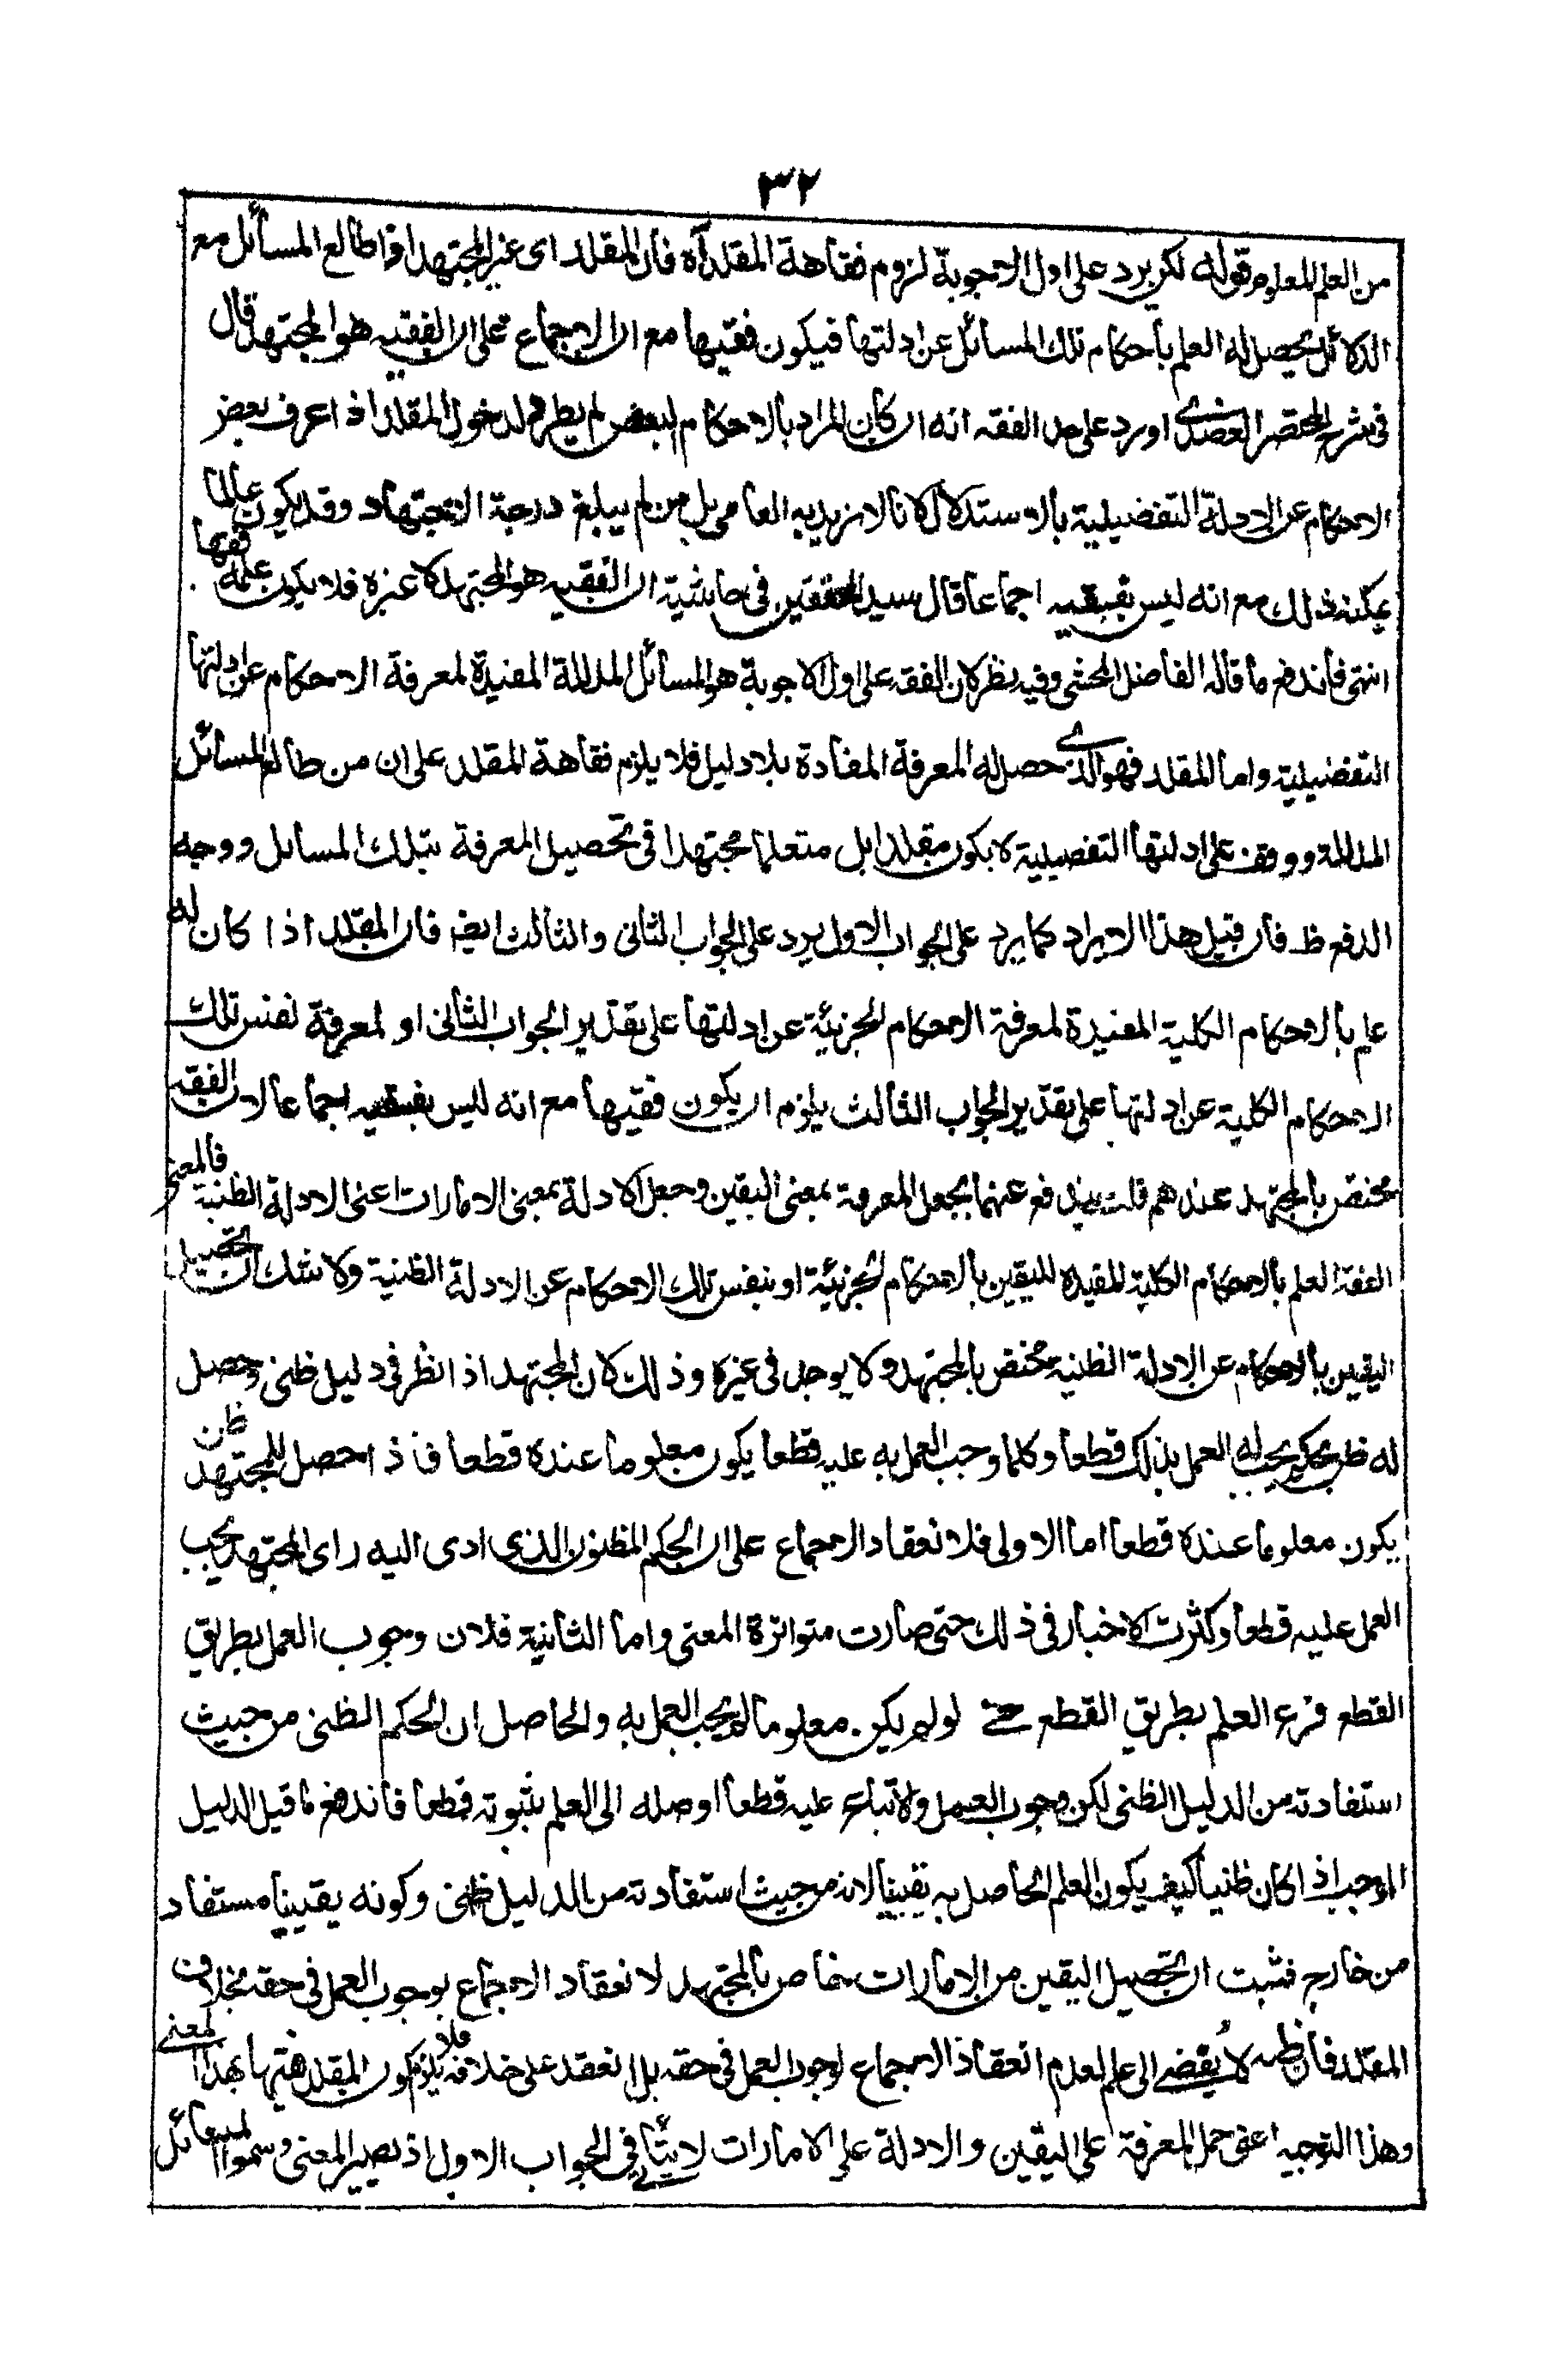 ٣٢
من العلم المعلوم قوله لكن يرد على اول الاجوبة لزوم فقاهة المقلد آه فان المقلد اى غير المجتهد اذا طالع المسائل مع
الدلائل يحصل له العلم بأحكام تلك المسائل عن ادلتها فيكون فقيها مع ان الاجماع على ان الفقيه هو المجتهد قال
فى شرح المختصر العضدى اورد على حد الفقه انه ان كان المراد بالاحكام البعض لم يطرد لدخول المقلد اذا عرف بعض
الاحكام عن الادلة التفضيلية بالاستدلال لانا لا نريد به العامى بل من لم يبلغ درجة الاجتهاد وقد يكون عالما
يمكنه ذلك مع انه ليس بفقيه اجماعا قال سيد المحققين فى حاشية ان الفقيه هو المجتهد لا غيره فلا يكون علمه فقها
انتهى فأندفع ما قاله الفاضل المحشى وفيه نظر لان الفقه على اول الاجوبة هو المسائل المدللة المفيدة لمعرفة الاحكام عن ادلتها
التفضيلية واما المقلد فهو الذى حصل له المعرفة المفادة بلا دليل فلا يلزم فقاهة المقلد على ان من طالع المسائل
المدللة ووقف على ادلتها التفصيلية لا يكون مقلدا بل متعلما مجتهدا فى تحصيل المعرفة بتلك المسائل ووجه
الدفع ظ فان قيل هذا الايراد كما يرد على الجواب الاول يرد على الجواب الثانى والثالث ايضا فان المقلد اذا كان له
علم بالاحكام الكلية المفيدة لمعرفة الاحكام الجزئية عن ادلتها على تقدير الجواب الثانى او لمعرفة نفس تلك
الاحكام الكلية عن ادلتها على تقدير الجواب الثالث يلزم ان يكون فقيها مع انه ليس بفقيه اجماعا لان الفقه
مختص بالمجتهد عندهم قلت يندفع عنهما بجعل المعرفة بمعنى اليقين وجعل الادلة بمعنى الامارات اعنى الادلة الظنية فالمعنى
الفقه العلم بالاحكام الكلية المفيدة لليقين بالاحكام الجزئية او بنفس تلك الاحكام عن الادلة الظنية ولا شك ان تحصيل
اليقين بالاحكام عن الادلة الظنية مختص بالمجتهد ولا يوجد فى غيره وذلك لان المجتهد اذا نظر فى دليل ظنى وحصل
له ظن بحكم يجب له العمل بذلك قطعا وكلما وجب العمل به عليه قطعا يكون معلوما عنده قطعا فاذا حصل للمجتهد ظن
يكون معلوما عنده قطعا اما الاولى فلانعقاد الاجماع على ان الحكم المظنون الذى ادى اليه راى المجتهد يجب
العمل عليه قطعا وكثرت الاخبار فى ذلك حتى صارت متواترة المعنى واما الثانية فلان وجوب العمل بطريق
القطع فرع العلم بطريق القطع حتى لو لم يكن معلوما لم يجب العمل به والحاصل ان الحكم الظنى من حيث
استفادته من الدليل الظنى لكن وجوب العمل والاتباع عليه قطعا اوصله الى العلم بثبوته قطعا فأندفع ما قيل الدليل
الموجب اذا كان ظنيا كيف يكون العلم الحاصل به يقينيا لانه من حيث استفادته من الدليل ظنى وكونه يقينيا مستفاد
من خارج فثبت ان تحصيل اليقين من الامارات خاص بالمجتهد لانعقاد الاجماع بوجوب العمل فى حقه بخلاف
المقلد فان ظنه لا يفضى الى علم لعدم انعقاد الاجماع لوجوب العمل فى حقه بل انعقد على خلافه فلا يلزم كون المقلد فقيها بهذا المعنى
وهذا التوجيه اعنى حمل المعرفة على اليقين والادلة على الامارات لا يتأتى فى الجواب الاول اذ يصير المعنى وسموا المسائل